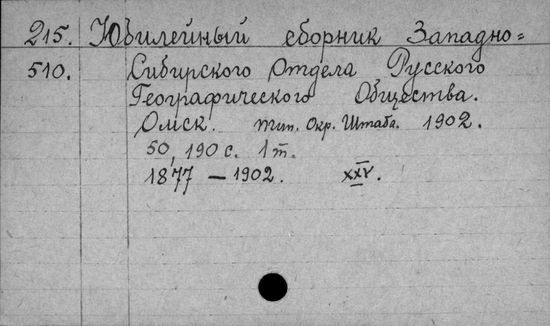 215. Юбилейный сборник Западно=
510. Сибирского Отдела Русского
Географического Общества.
Омск. тип. Окр. Штаба. 1902.
50, 190 с. 1 т.
1877 — 1902. XXV.